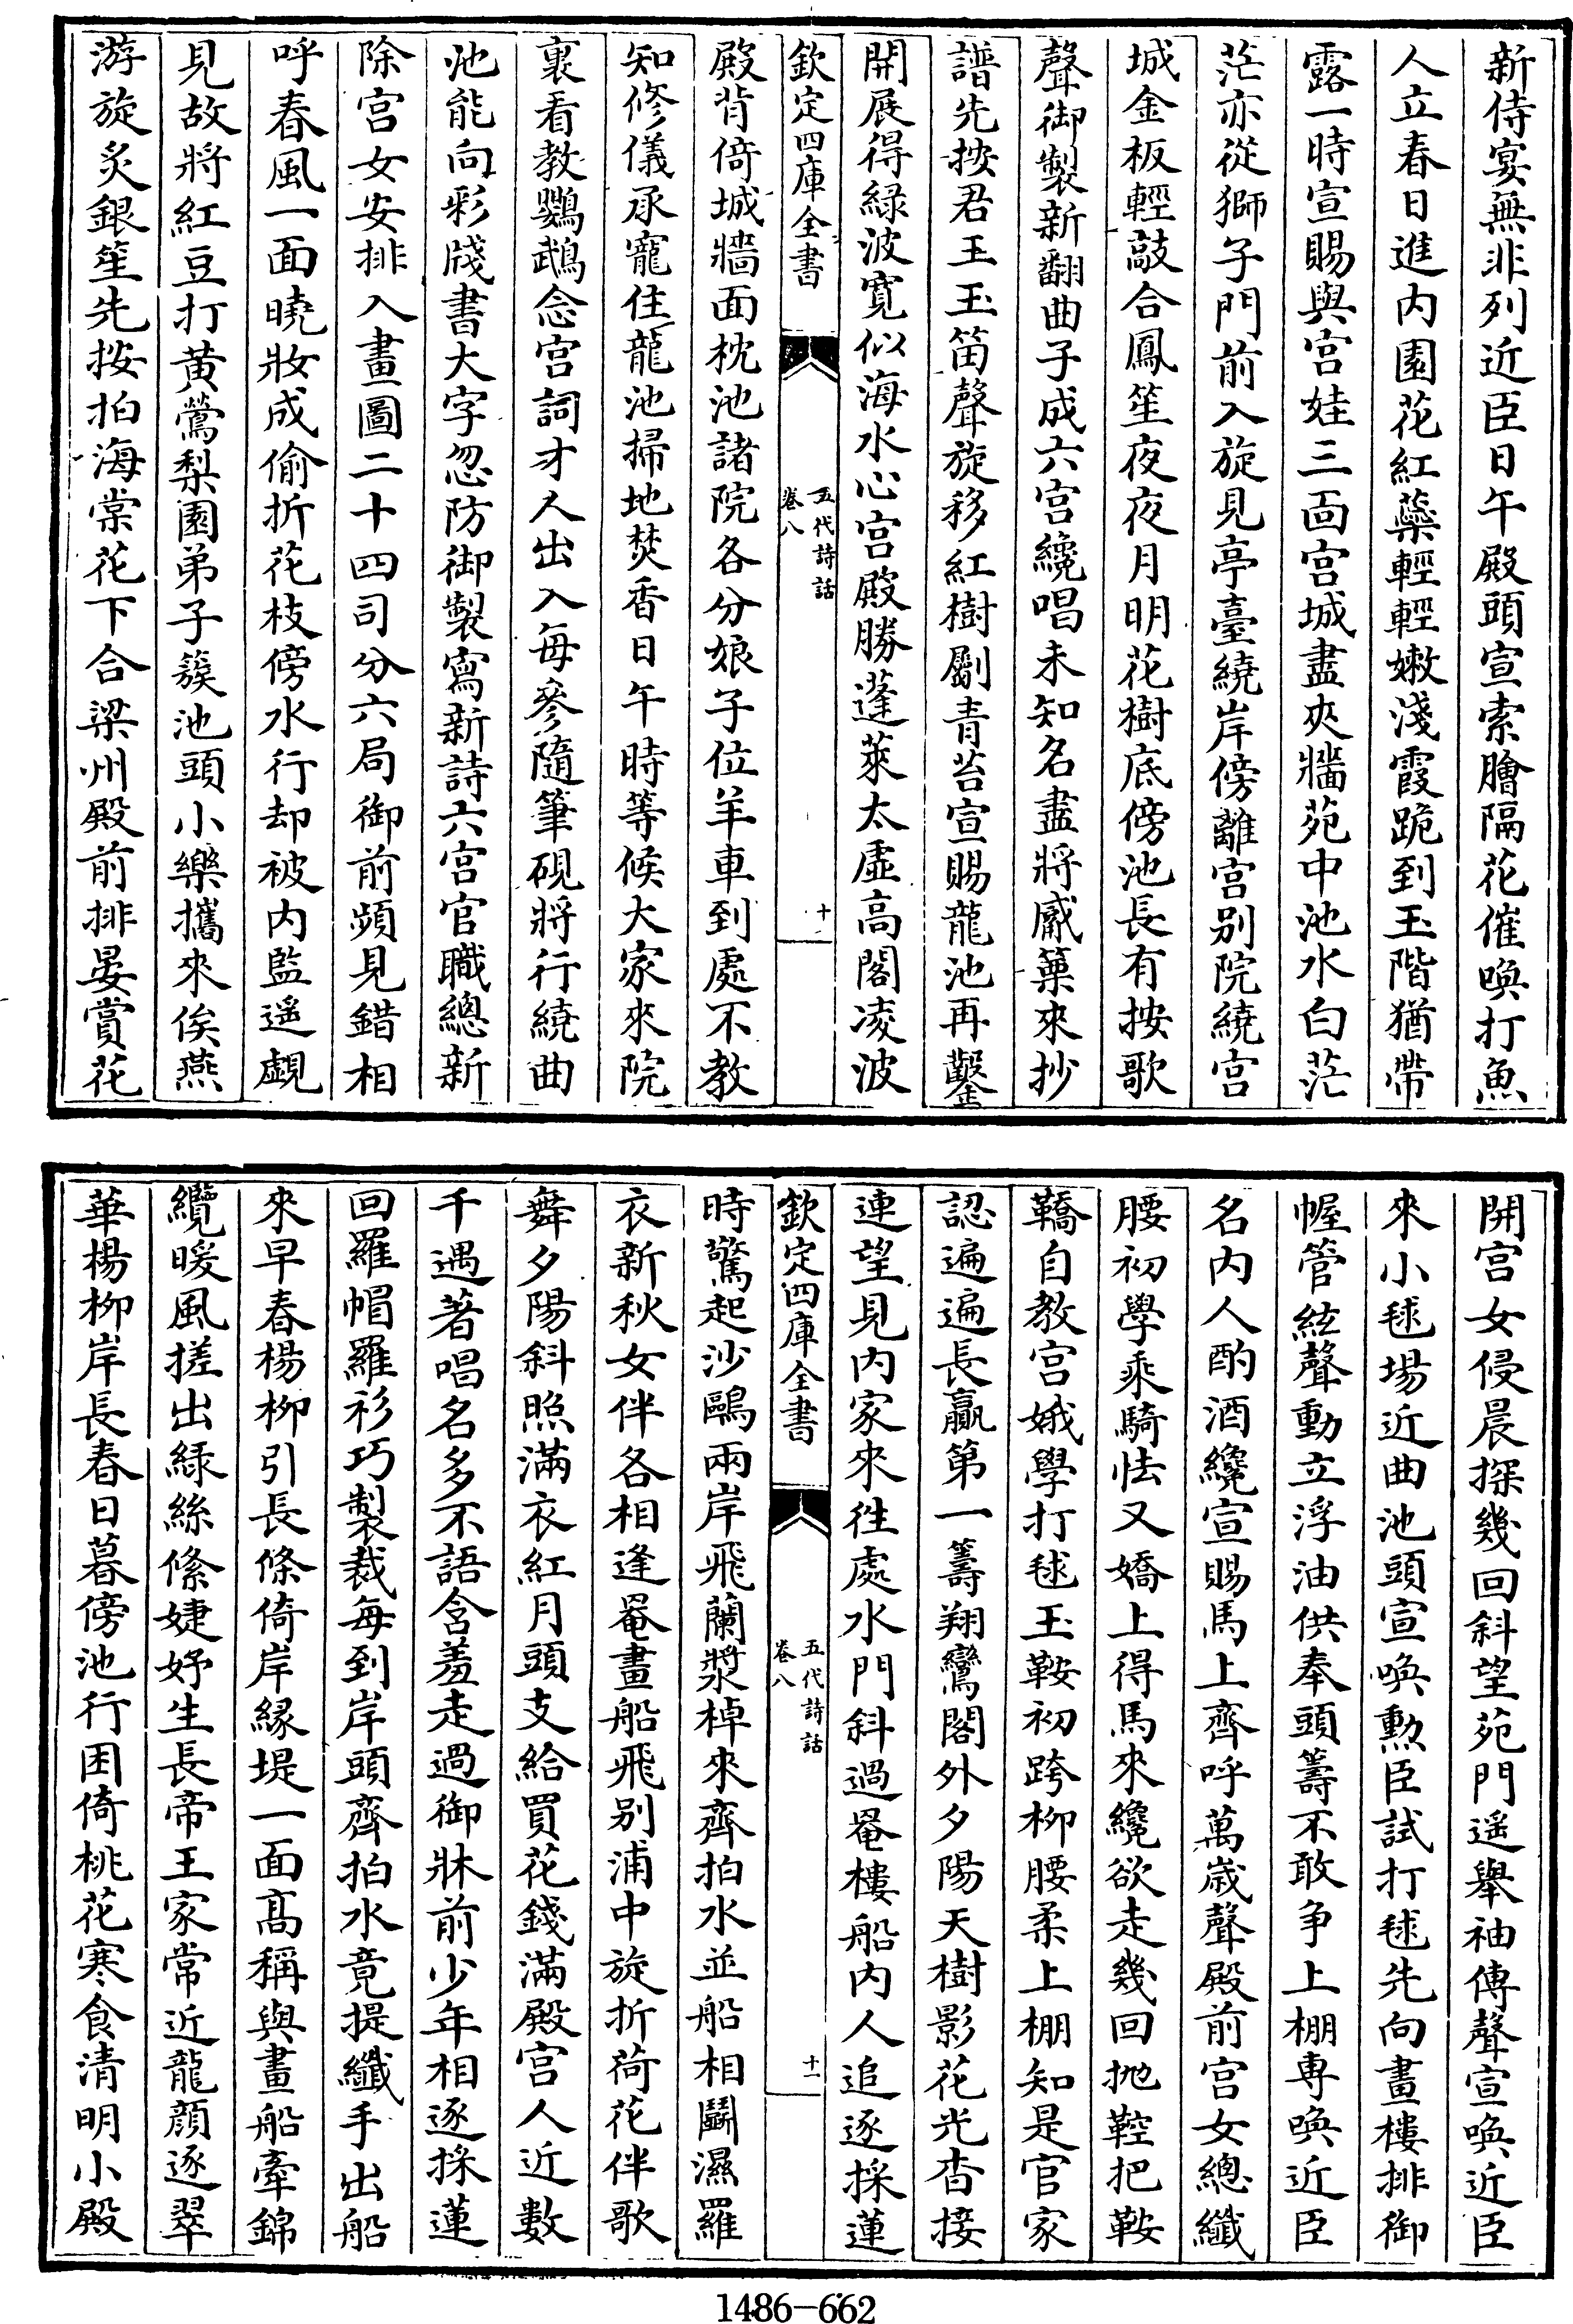 新侍宴無非列近臣日午殿頭宣索膾隔花催喚打魚
人立春日進内園花紅蘂輕輕嫩淺霞跪到玉階猶帶
露一時宣賜與宫娃三面宫城盡夾牆苑中池水白茫
茫亦從獅子門前入旋見亭臺繞岸傍離宫别院繞宫
城金板輕敲合鳳笙夜夜月明花樹底傍池長有按歌
聲御製新翻曲子成六宫纔唱未知名盡將觱篥來抄
譜先按君王玉笛聲旋移紅樹斸青苔宣賜龍池再鑿
開展得緑波寛似海水心宫殿勝蓬萊太虚高閣凌波
欽定四庫全書
五代詩話
卷八
十
殿背倚城牆面枕池諸院各分娘子位羊車到處不教
知修儀承寵住龍池掃地焚香日午時等候大家來院
裏看教鸚鵡念宫詞才人出入每參隨筆硯將行繞曲
池能向彩牋書大字忽防御製寫新詩六宫官職總新
除宫女安排入畫圖二十四司分六局御前頻見錯相
呼春風一面曉妝成偷折花枝傍水行却被内監遥覷
見故將紅豆打黄鶯梨園弟子簇池頭小樂攜來俟燕
游旋炙銀笙先按拍海棠花下合梁州殿前排晏賞花
開宫女侵晨探幾回斜望苑門遥舉袖傳聲宣喚近臣
來小毬場近曲池頭宣喚勲臣試打毬先向畫樓排御
幄管絃聲動立浮油供奉頭籌不敢争上棚專喚近臣
名内人酌酒纔宣賜馬上齊呼萬歲聲殿前宫女總纖
腰初學乘騎怯又嬌上得馬來纔欲走幾回抛鞚把鞍
鞽自教宫娥學打毬玉鞍初跨柳腰柔上棚知是官家
認遍遍長贏第一籌翔鸞閣外夕陽天樹影花光杳接
連望見内家來往處水門斜過罨樓船内人追逐採蓮
欽定四庫全書
五代詩話
卷八
十一
時驚起沙鷗兩岸飛蘭槳棹來齊拍水並船相鬭濕羅
衣新秋女伴各相逢罨畫船飛别浦中旋折荷花伴歌
舞夕陽斜照滿衣紅月頭支給買花錢滿殿宫人近數
千遇著唱名多不語含羞走過御牀前少年相逐採蓮
回羅帽羅衫巧製裁每到岸頭齊拍水竟提纖手出船
來早春楊柳引長條倚岸縁堤一面髙稱與畫船牽錦
纜暖風搓出緑絲絛婕妤生長帝王家常近龍顔逐翠
華楊柳岸長春日暮傍池行困倚桃花寒食清明小殿
1486-662